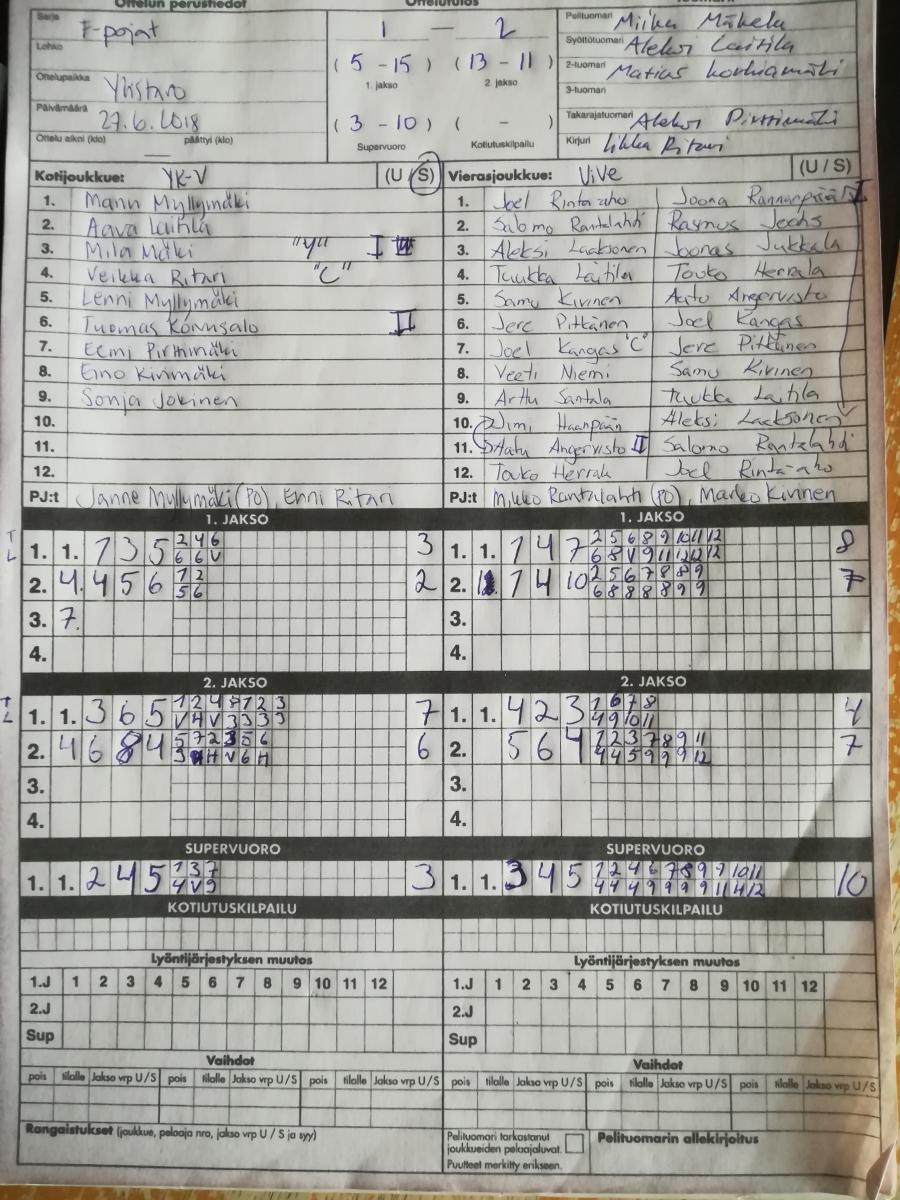 Ottelun perustiedot
Sarja F-pojat
Lohko
Ottelupaikka Ylistaro
Päivämäärä 27.6.2018
Ottelu alkoi (klo) — päättyi (klo)
1 — 2
( 5 - 15 ) ( 13 - 11 )
1. jakso 2. jakso
( 3 - 10 ) ( - )
Supervuoro Kotiutuskilpailu
Pelituomari Miika Mäkelä
Syöttötuomari Aleksi Laitila
2-tuomari Matias Korkiamäki
3-tuomari
Takarajatuomari Aleksi Pirttimäki
Kirjuri Iikka Ritari
Kotijoukkue: YK-V (U / S)
1. Mann Myllymäki
2. Aava Laitila
3. Mila Mätki "Y" I III
4. Veikka Ritari "C"
5. Lenni Myllymäki
6. Tuomas Könnsalo II
7. Eemi Pirttimäki
8. Eino Kivimäki
9. Sonja Jokinen
10.
11.
12.
PJ:t Janne Myllymäki (PO), Enni Ritari
Vierasjoukkue: ViVe (U / S)
1. Joel Rinta-aho Joona Rannanpää I
2. Salomo Rantalahti Rasmus
3. Aleksi Laaksonen Joonas Jukkala
4. Tuukka Laitila Touko Herrala
5. Samu Kivinen Aatu Angervisto
6. Jere Pitkänen Joel Kangas
7. Joel Kangas "C" Jere Pitkänen
8. Veeti Niemi Samu Kivinen
9. Arttu Santala Tuukka Laitila
10. Haanpään Aleksi Laaksonen
11. Angervisto II Salomo Rantalahti
12. Touko Herrala Joel Rinta-aho
PJ:t Mikko Rantalahti (PO), Marko Kivinen
1. JAKSO
T 1. 1. 7 3 5 2 4 6 3
L 6 6 V
2. 4. 4 5 6 1 2 2
5 6
3. 7.
4.
1. JAKSO
1. 1. 1 4 7 2 5 6 8 9 10 11 12 8
6 8 V 9 11 12 12 12
2. 1. 1 4 10 2 5 6 7 8 8 9 7
6 8 8 8 8 9 9
3.
4.
2. JAKSO
T 1. 1. 3 6 5 1 2 4 8 1 2 3 7
L V H V 3 3 3 3
2. 4 6 8 4 5 7 2 3 5 6 6
3 H H V 6 H
3.
4.
2. JAKSO
1. 1. 4 2 3 1 6 7 8 4
4 9 10 11
2. 5 6 4 1 2 3 7 8 9 11 7
4 4 5 9 9 9 12
3.
4.
SUPERVUORO
1. 1. 2 4 5 1 3 7 3
4 V 9
SUPERVUORO
1. 1. 3 4 5 1 2 4 6 7 8 9 9 10 11 10
4 4 4 9 9 9 9 11 4 12
KOTIUTUSKILPAILU
KOTIUTUSKILPAILU
Lyöntijärjestyksen muutos
1.J 1 2 3 4 5 6 7 8 9 10 11 12
2.J
Sup
Lyöntijärjestyksen muutos
1.J 1 2 3 4 5 6 7 8 9 10 11 12
2.J
Sup
Vaihdot
pois tilalle Jakso vrp U / S pois tilalle Jakso vrp U / S pois tilalle Jakso vrp U / S
Vaihdot
pois tilalle Jakso vrp U / S pois tilalle Jakso vrp U / S pois tilalle Jakso vrp U / S
Rangaistukset (joukkue, pelaaja nro, jakso vrp U / S ja syy)
Pelituomari tarkastanut
joukkueiden pelaajaluvat.
Puutteet merkitty erikseen.
Pelituomarin allekirjoitus